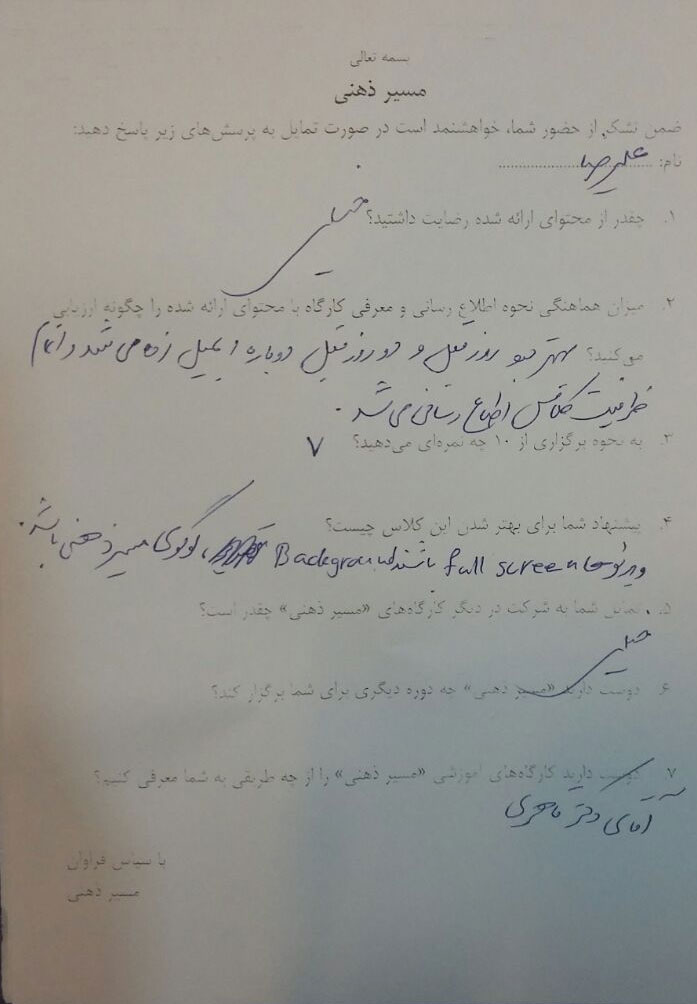 بسمه تعالی
مسیر ذهنی
ضمن تشکر از حضور شما، خواهشنمد است در صورت تمایل به پرسش‌های زیر پاسخ دهید:
نام: علیرضا
۱. چقدر از محتوای ارائه شده رضایت داشتید؟ خیلی
۲. میزان هماهنگی نحوه اطلاع رسانی و معرفی کارگاه با محتوای ارائه شده را چگونه ارزیابی
می‌کنید؟ بهتر بود روز قبل و دو روز قبل دوباره ایمیل زده می شد و اتمام
ظرفیت کلاس اطلاع رسانی می شد.
۳. به نحوه برگزاری از ۱۰ چه نمره‌ای می‌دهید؟ ۷
۴. پیشنهاد شما برای بهتر شدن این کلاس چیست؟
full screen باشند Background، لوگوی مسیر ذهنی باشد.
۵. تمایل شما به شرکت در دیگر کارگاه‌های «مسیر ذهنی» چقدر است؟
خیلی
۶. دوست دارید «مسیر ذهنی» چه دوره دیگری برای شما برگزار کند؟
۷. دوست دارید کارگاه‌های آموزشی «مسیر ذهنی» را از چه طریقی به شما معرفی کنیم؟
آقای دکتر
با سپاس فراوان
مسیر ذهنی